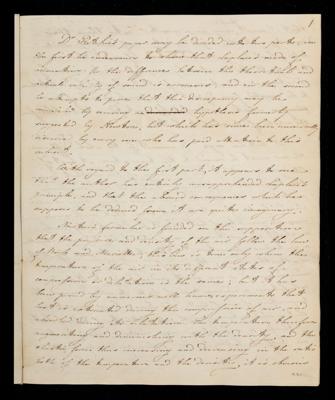 1
Dr. paper may be divided into two parts; in
the first he endeavours to shew that Laplace's mode of
the difference between the theoretical and
actual velocity of sound is erroneous; and in the second
he attempts to prove that this discrepancy may be
by hypothesis formerly
suggested by Newton, but which has since been universally
by every one who has paid attention to this
subject.
With regard to the first part, it appears to me
that the author has entirely misapprehended Laplace's
principle, and that the consequences which he
supposes to be deduced from it are quite imaginary.
Newton's formula is founded on the supposition
that the pressure and density of the air follow the law
of Boyle and Mariotte; this law is true only when the
temperature of the air in the different states of
compression or dilatation is the same; but it has
been proved by numerous well known experiments that
heat is extricated during the compression of air, and
absorbed during its dilatation. The temperature therefore
augmenting and diminishing with the density, and the
elastic force thus increasing and decreasing in the ratio
both of the temperature and the densities, it is obvious